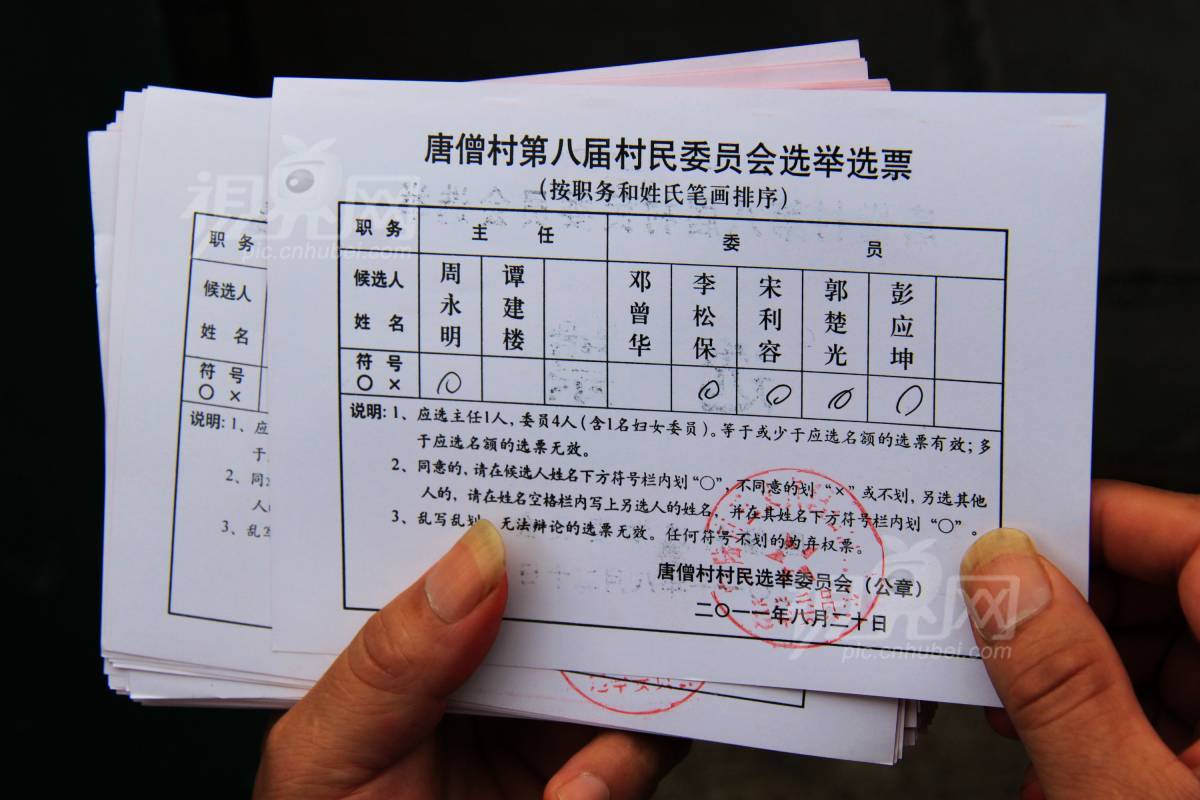 唐僧村第八届村民委员会选举选票
(按职务和姓氏笔画排序)
职务 主任 委员
候选人姓名 周永明 谭建楼 邓曾华 李松保 宋利容 郭楚光 彭应坤
符号 ○ ×
说明:1、应选主任1人,委员4人(含1名妇女委员)。等于或少于应选名额的选票有效;多
于应选名额的选票无效。
2、同意的,请在候选人姓名下方符号栏内划“○”,不同意的划“×”或不划,另选其他
人的,请在姓名空格栏内写上另选人的姓名,并在其姓名下方符号栏内划“○”。
3、乱写乱划、无法辩论的选票无效。任何符号不划的为弃权票。
唐僧村村民选举委员会(公章)
二〇一一年八月二十日
职务
候选人
姓名
符号
○ ×
说明:1、应
于
2、同
人
3、乱写
视界网
pic.cnhubei.com
视界网
pic.cnhubei.com